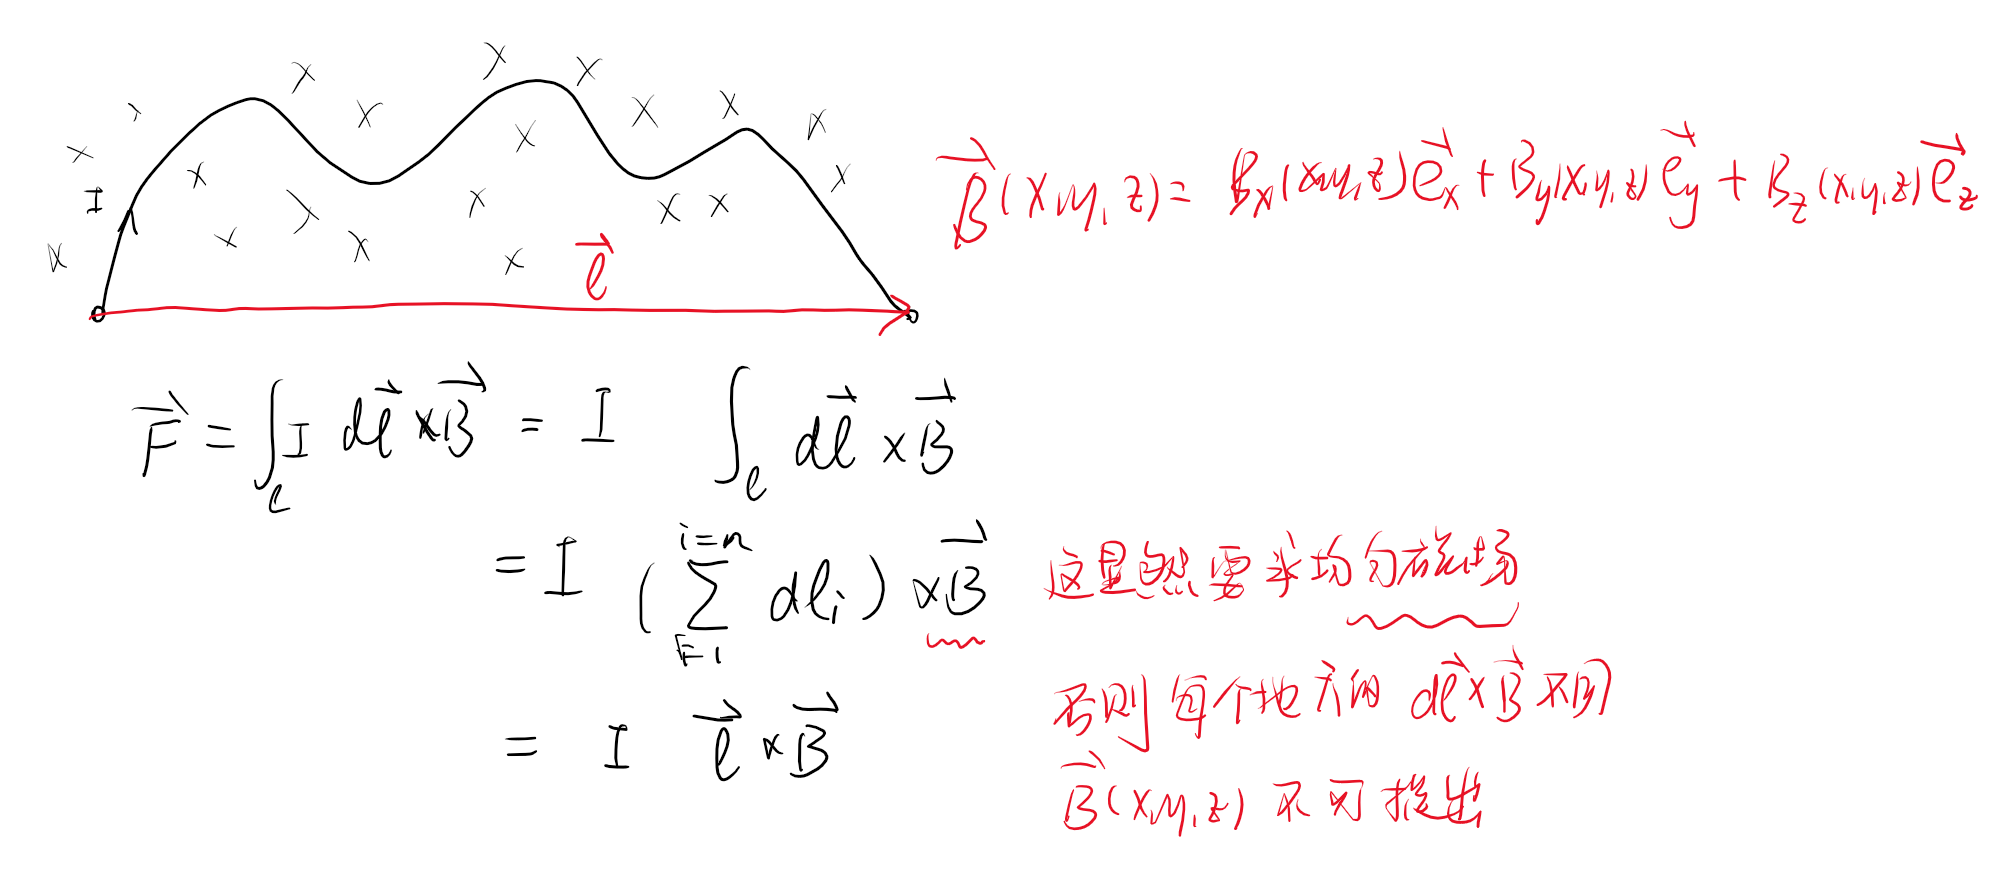 I
$\vec{l}$
$\vec{B}(x,y,z) = B_x(x,y,z)\vec{e_x} + B_y(x,y,z)\vec{e_y} + B_z(x,y,z)\vec{e_z}$
$\vec{F} = \int_l I \, d\vec{l} \times \vec{B} = I \int_l d\vec{l} \times \vec{B}$
$= I \, (\sum_{i=1}^{i=n} dl_i) \times \vec{B}$ 这显然要求均匀磁场
否则每个地方的 $d\vec{l} \times \vec{B}$ 不同
$= I \, \vec{l} \times \vec{B}$
$\vec{B}(x,y,z)$ 不可提出